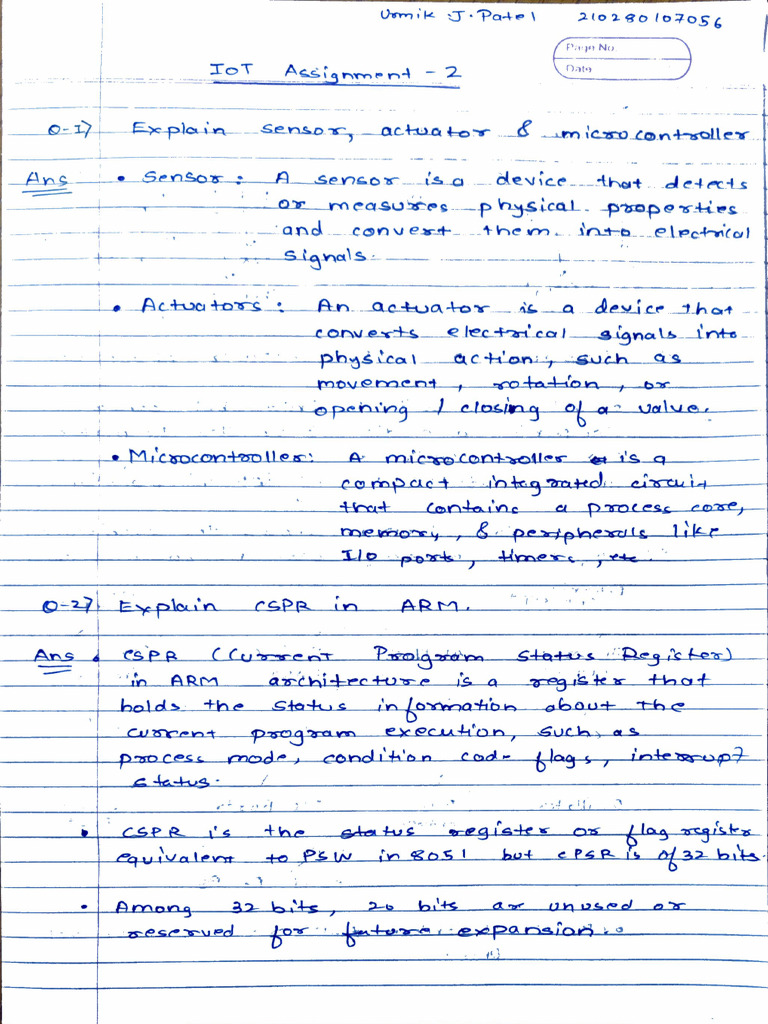 Urmik J. Patel 210280107056
Page No.
Date
IoT Assignment - 2
Q-1) Explain sensor, actuator & microcontroller
Ans • Sensor: A sensor is a device that detects
or measures physical properties
and convert them into electrical
signals.
• Actuators: An actuator is a device that
converts electrical signals into
physical action, such as
movement, rotation, or
opening / closing of a valve.
• Microcontroller: A microcontroller is a
compact integrated circuit
that contains a process core,
memory, & peripherals like
I/O ports, timers, etc
Q-2) Explain CSPR in ARM.
Ans • CSPR (Current Prolgram Status Register)
in ARM architecture is a register that
holds the status information about the
current program execution, such as
process mode, condition code flags, interrupt
status.
• CSPR is the status register or flag register
equivalent to PSW in 8051 but CPSR is of 32 bits.
• Among 32 bits, 20 bits are unused or
reserved for future expansion.